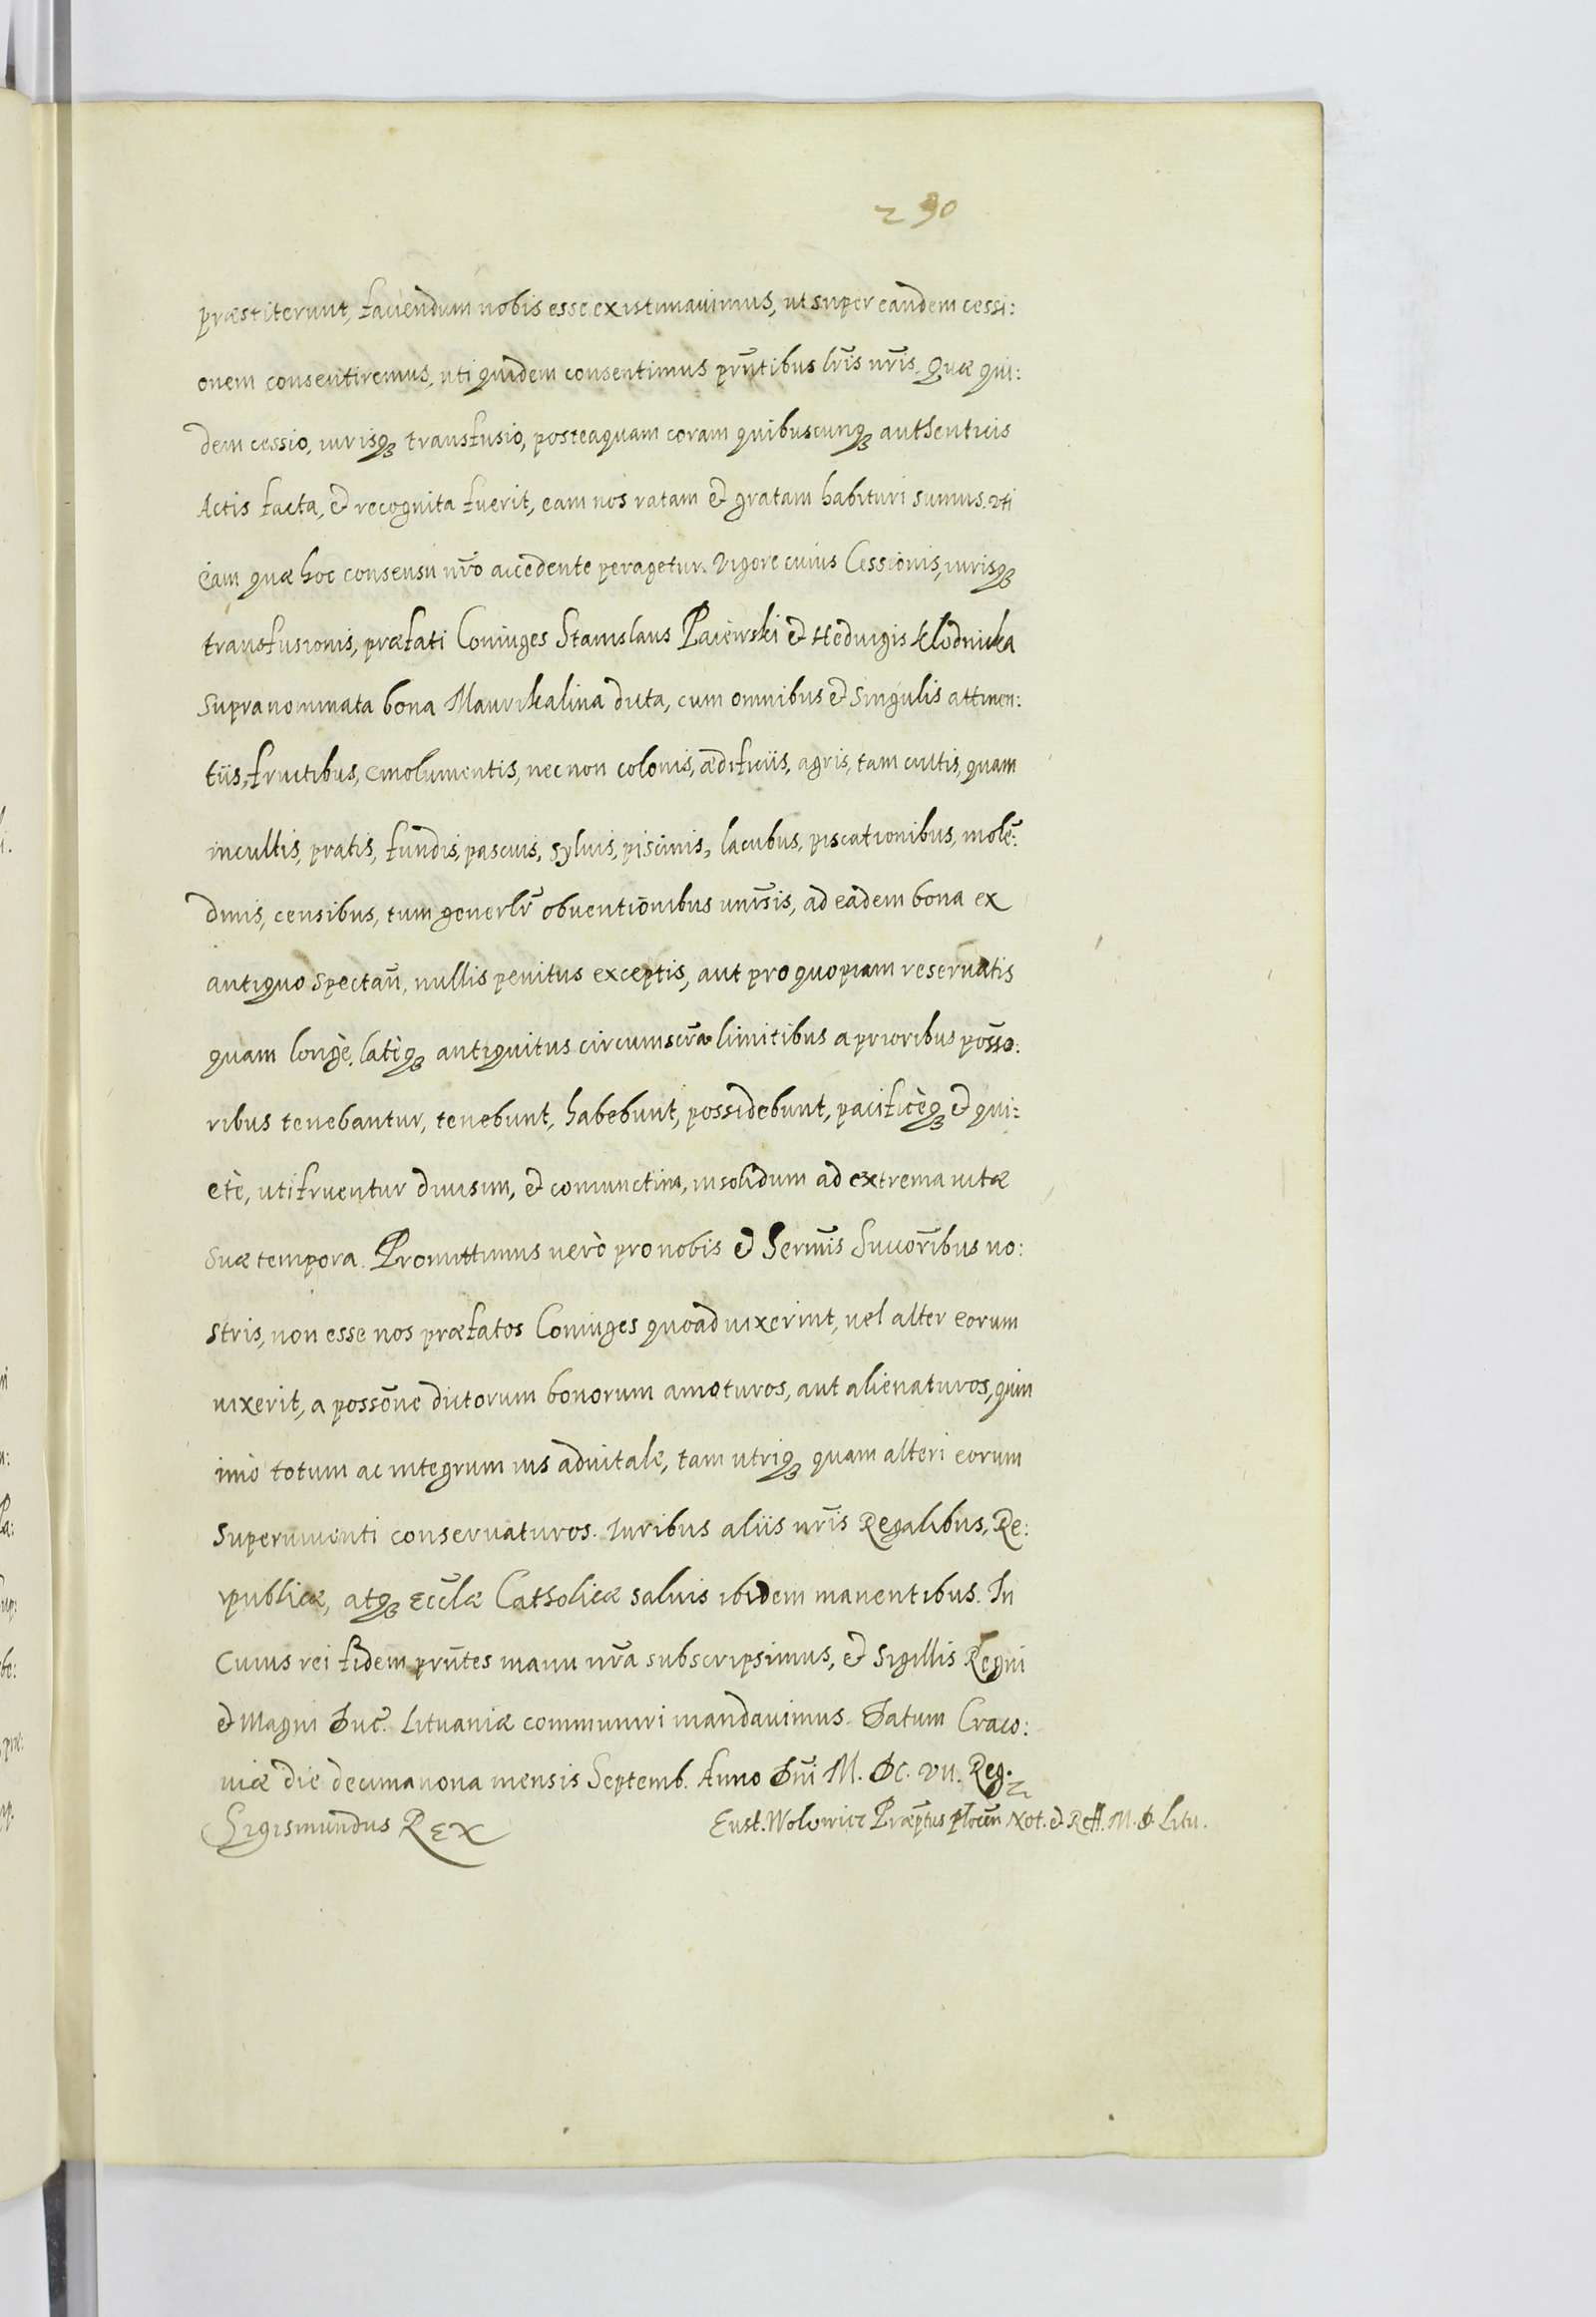 290
præstiterunt, faciendum nobis esse existimauimus, ut super eandem cessi:
onem consentiremus, uti quidem consentimus prñtibus lr̃is nr̃is. Quæ qui:
dem cessio, iurisq₃ transfusio, posteaquam coram quibuscunq₃ authenticis
Actis facta, & recognita fuerit, eam nos ratam & gratam habituri sumus. uti
eam quæ hoc consensu nr̃o accedente peragetur. Vigore cuius Cessionis, iurisq₃
transfusionis, præfati Coniuges Stanislaus Paiewski & Heduigis Klodnicka
supranominata bona Maurikalina dicta, cum omnibus & singulis attinen:
tiis, fructibus, emolumentis, nec non colonis, ædificiis, agris, tam cultis, quam
incultis, pratis, fundis, pascuis, syluis, piscinis, lacubus, piscationibus, molẽ:
dinis, censibus, tum generlr̃ obuentionibus unir̃sis, ad eadem bona ex
antiquo spectañ, nullis penitus exceptis, aut pro quopiam reseruatis
quam longè, latèq₃ antiquitus circumscr̃a limitibus a prioribus poss̃o:
ribus tenebantur, tenebunt, habebunt, possidebunt, pacificèq₃ & qui:
etè, utifruentur diuisim, & coniunctim, in solidum ad extrema uitæ
suæ tempora. Promittimus uerò pro nobis & Serm̃is Succor̃ibus no:
stris, non esse nos præfatos Coniuges quoad uixerint, uel alter eorum
uixerit, a possõne dictorum bonorum amoturos, aut alienaturos, quin
imò totum ac integrum ius aduitale, tam utriq₃ quam alteri eorum
superuiuenti conseruaturos. Iuribus aliis nr̃is Regalibus, Re:
ipublicæ, atq₃ Eccl̃æ Catholicæ saluis ibidem manentibus. In
Cuius rei fidem prñtes manu nr̃a subscripsimus, & Sigillis Regni
& Magni Duc̃. Lituaniæ communiri mandauimus. Datum Craco:
uiæ die decima nona mensis Septemb. Anno Dñi M. DC. VII. Reg.
Sigismundus Rex
Eust. Wolowicz Præp̃tus Trocen̄ Not. & Reff. M. D. Litu.